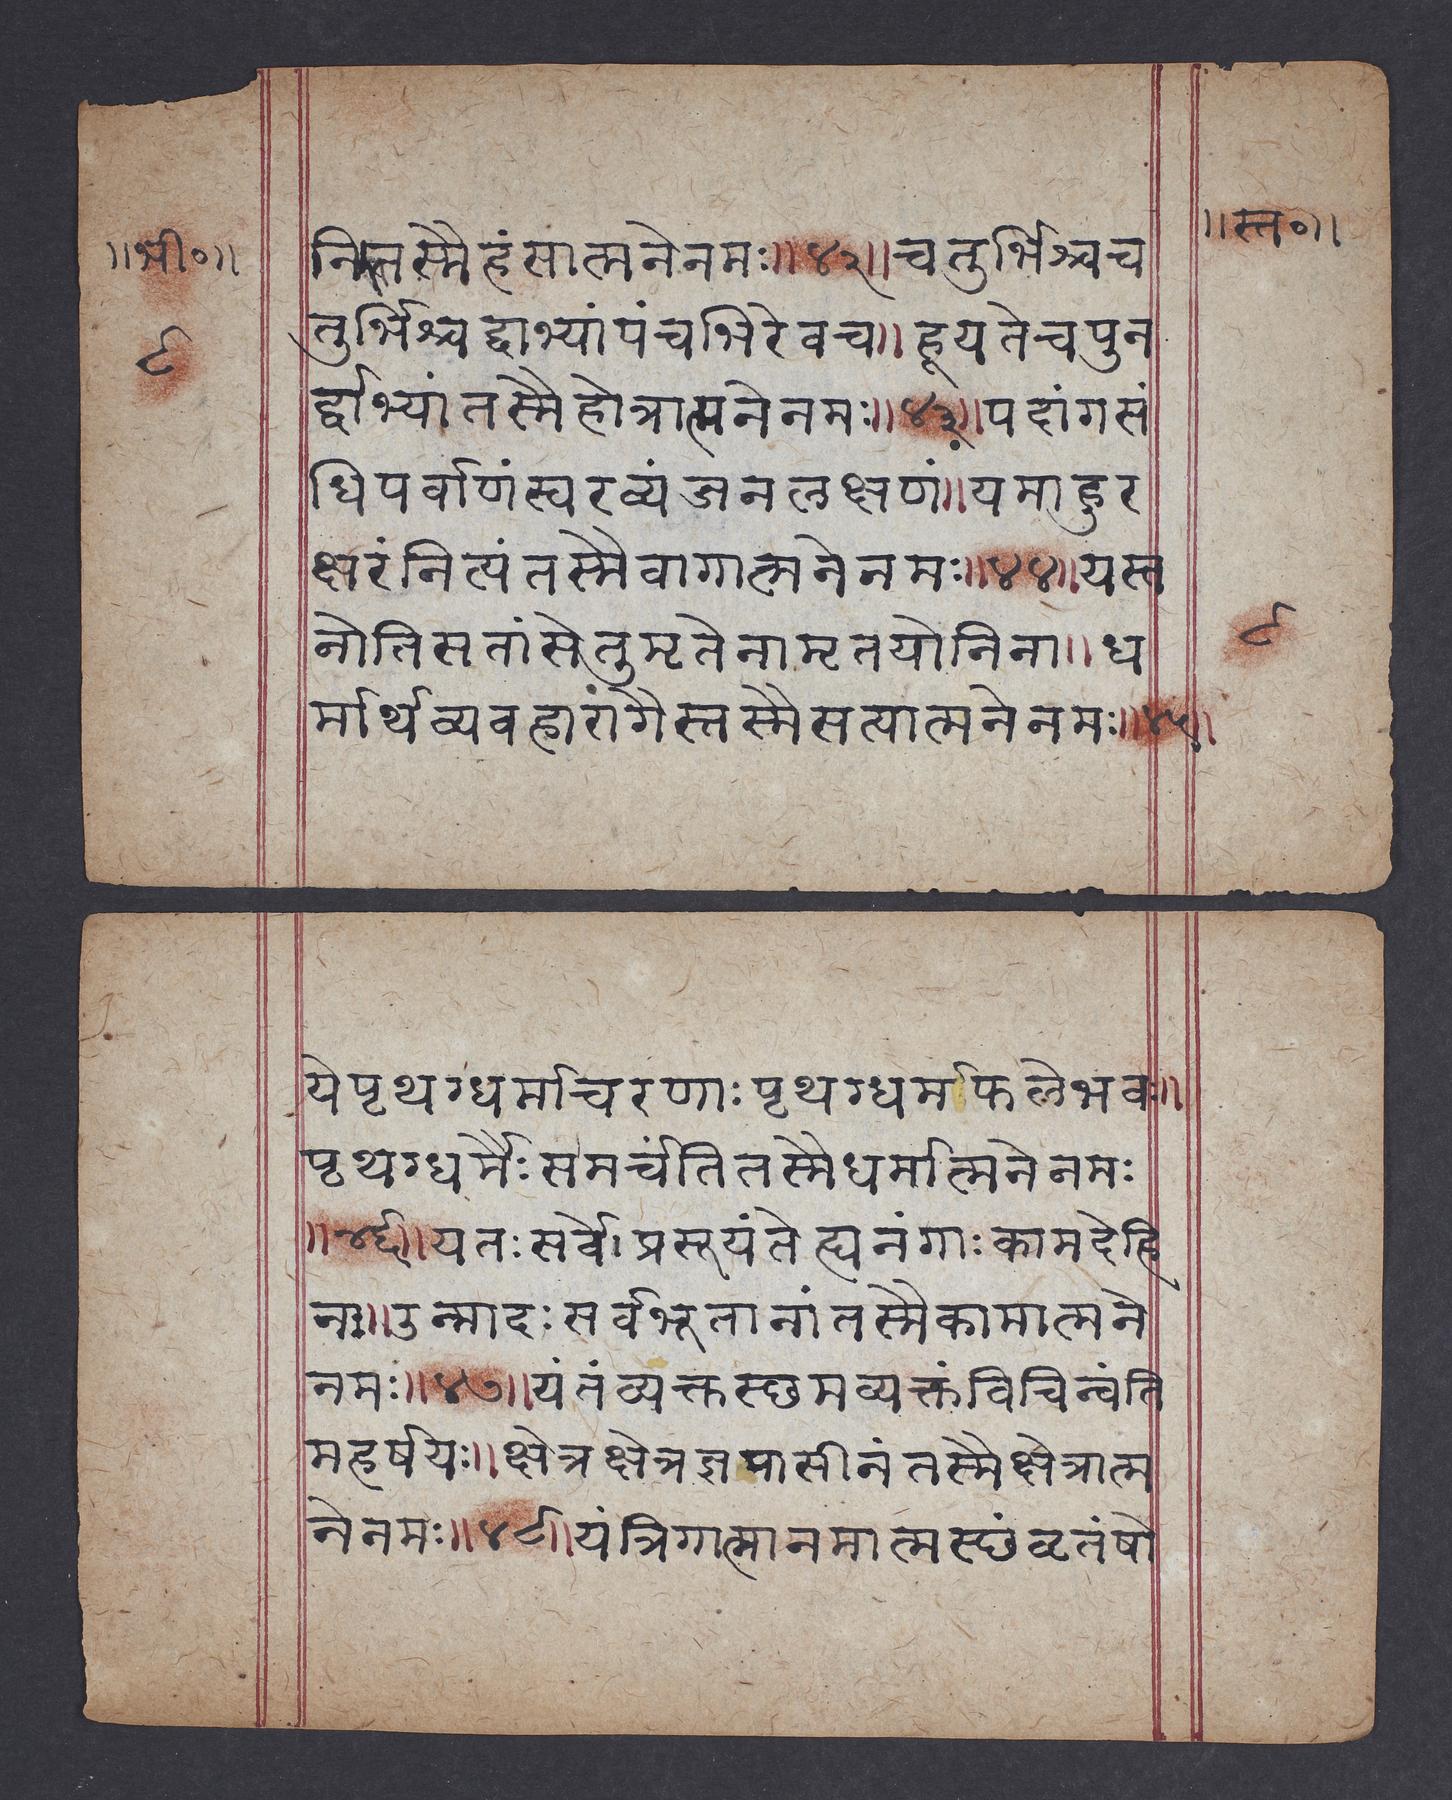 ॥भी०॥
९
॥स्त०॥
निस्तस्मैहंसात्मनेनमः॥४२॥चतुर्भिश्चच
तुर्भिश्चद्वाभ्यांपंचभिरेवच॥हूयतेचपुन
र्द्वाभ्यांतस्मैहोत्रात्मनेनमः॥४३॥पदांगसं
धिपर्वाणंस्वरव्यंजनलक्षणं॥यमाहुर
क्षरंनित्यंतस्मैवागात्मनेनमः॥४४॥यस्त
नोतिसतांसेतुमृतेनामृतयोनिना॥ध
र्मार्थव्यवहारांगैस्तस्मैसत्यात्मनेनमः॥४५॥
९
येपृथग्धर्माचरणाःपृथग्धर्मफलेभवः॥
पृथग्धर्मैःसमर्चंतितस्मैधर्मात्मनेनमः
॥४६॥यतःसर्वेप्रसूयंतेह्यनंगाःकामदेहि
नः॥उन्मादःसर्वभूतानांतस्मैकामात्मने
नमः॥४७॥यंतंव्यक्तस्छमव्यक्तंविचिन्वंति
महर्षयः॥क्षेत्रक्षेत्रज्ञमासीनंतस्मैक्षेत्रात्म
नेनमः॥४८॥यंत्रिगात्मानमात्मस्छंवृतंषो